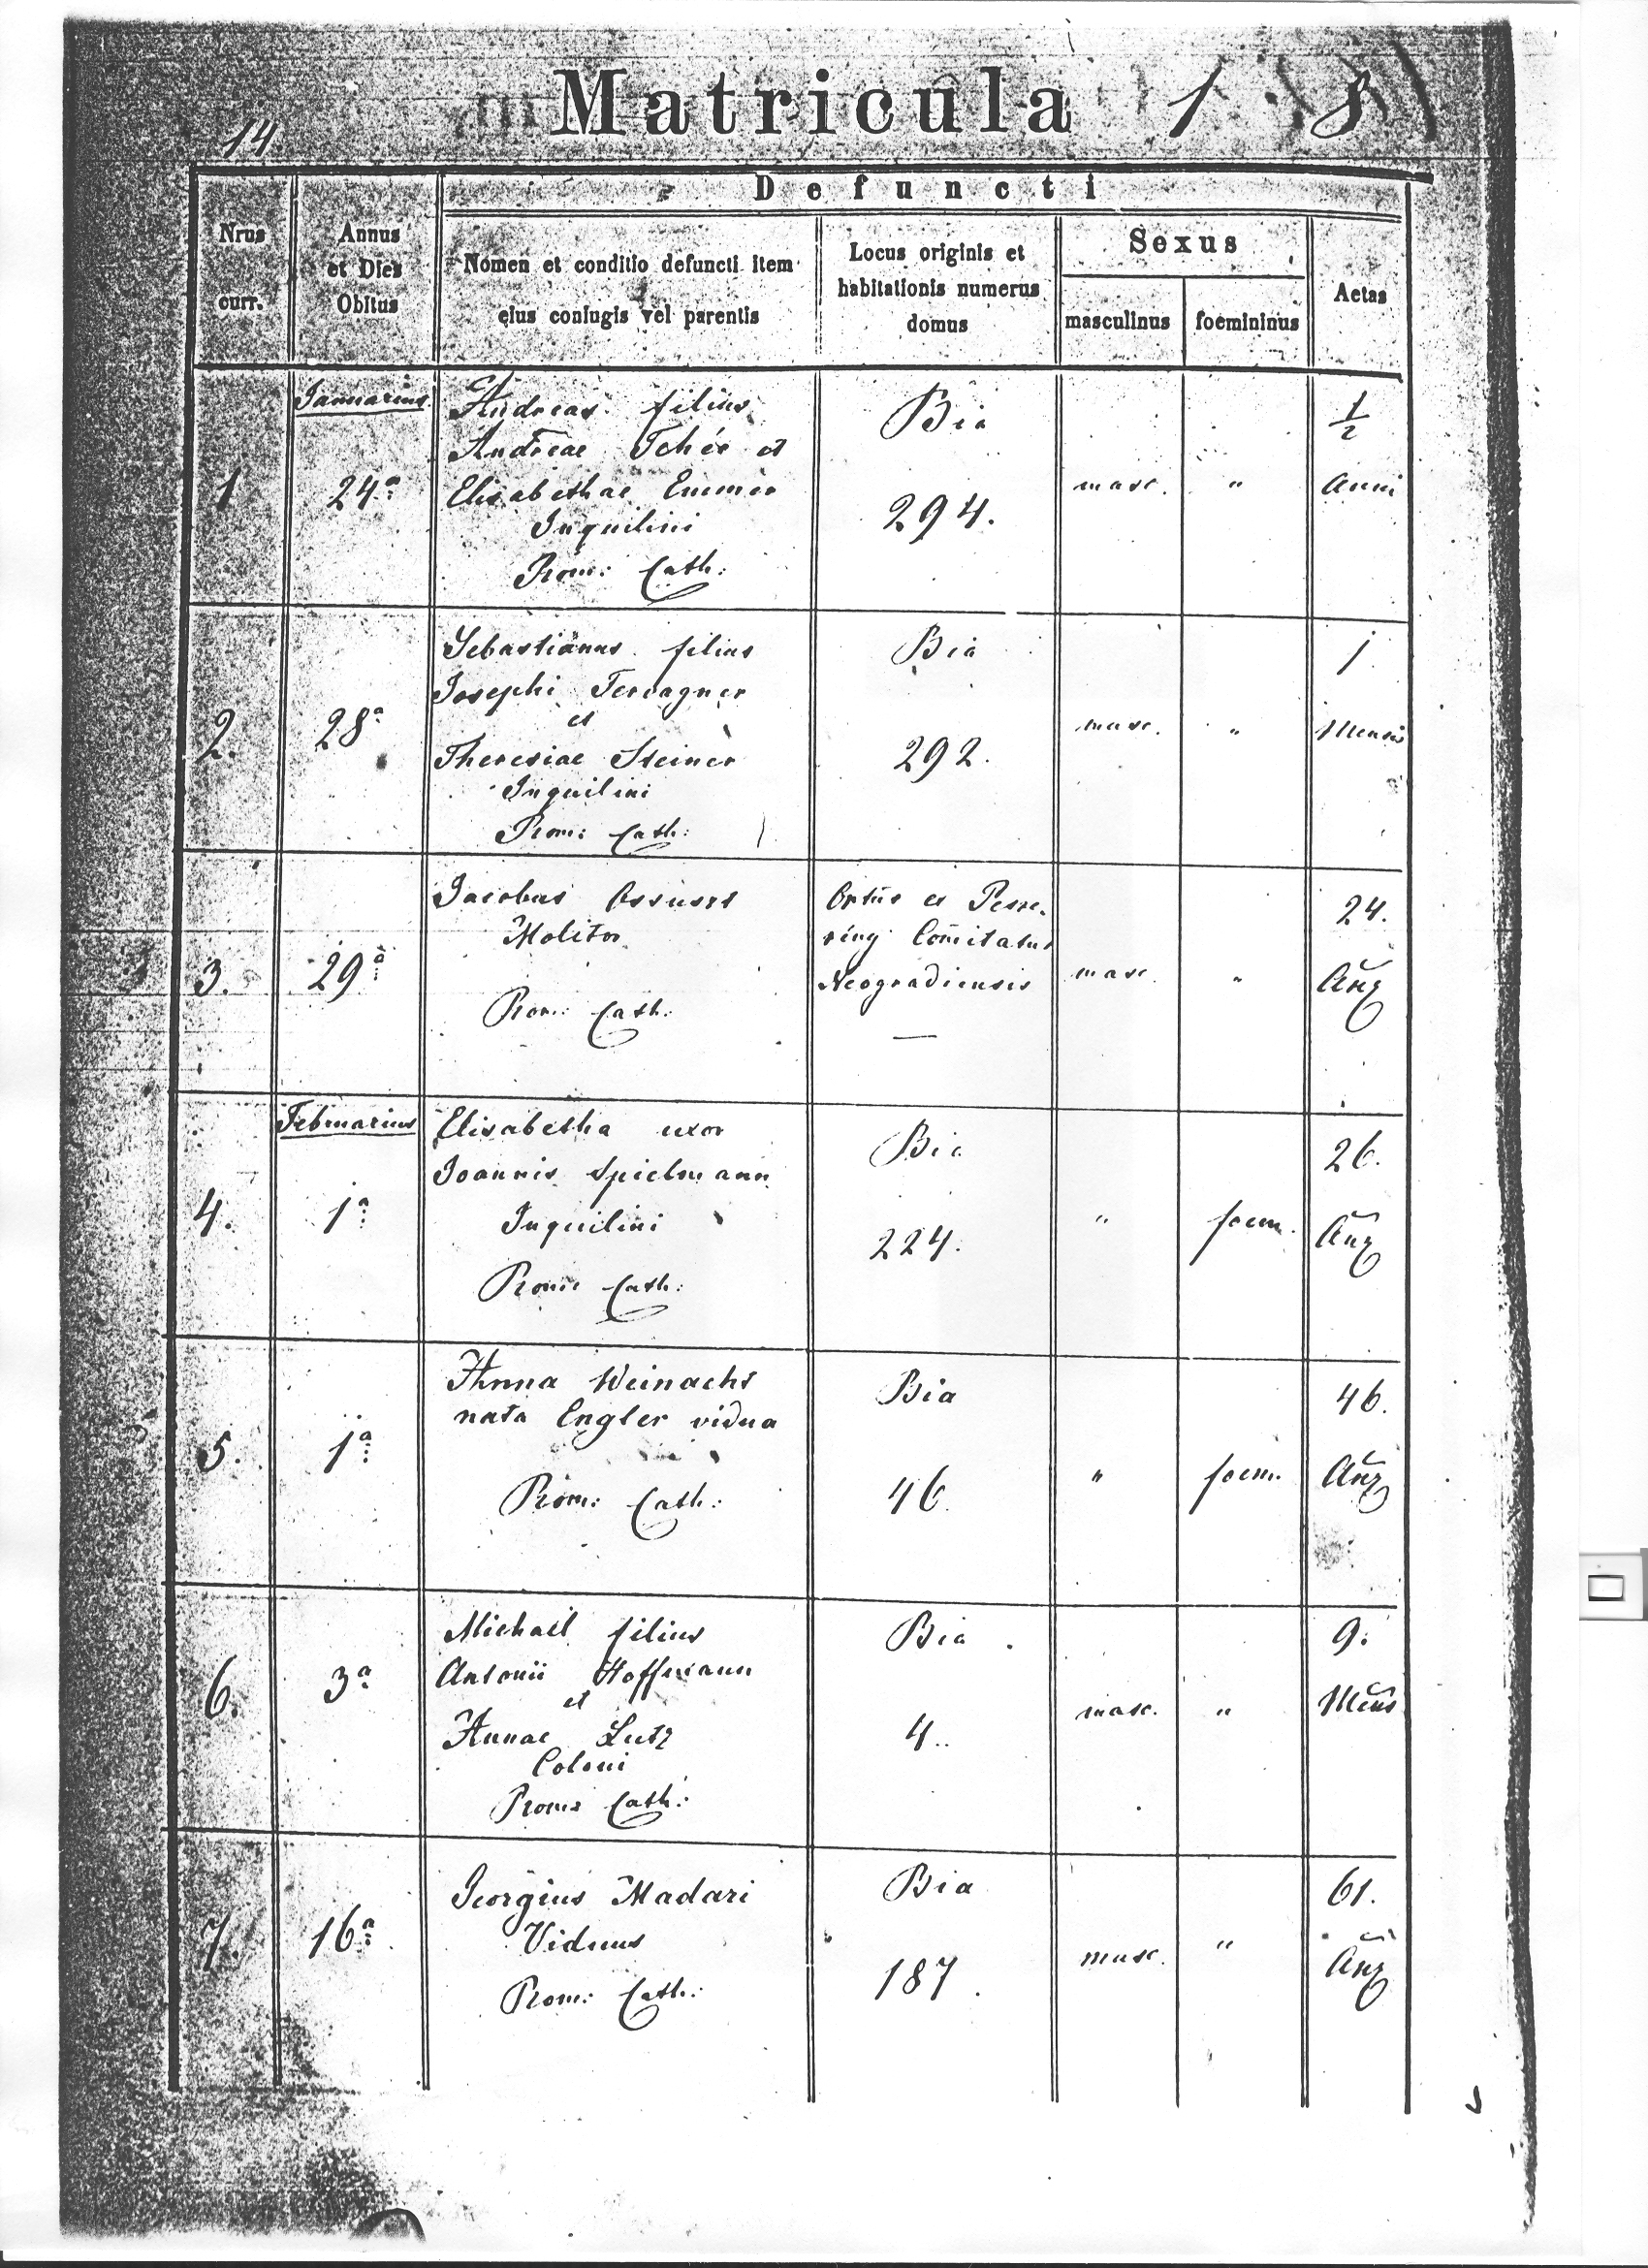 Matricula 1 8
14
Defuncti
Nrus
curr.
Annus
et Dies
Obitus
Nomen et conditio defuncti item
eius coniugis vel parentis
Locus originis et
habitationis numerus
domus
Sexus
masculinus
foemininus
Aetas
Januarius
1
24a
Andreas filius
Andreae et
Elisabethae
Inquilini
Rom: Cath:
Bia
294.
masc.
"
1/2
Anni
2.
28a
Sebastianus filius
Josephi
et
Theresiae Steiner
Inquilini
Rom: Cath:
Bia
292.
masc.
"
1
Mensis
3.
29a
Jacobus
Molitor
Rom: Cath:
Ortus
Comitatus
Neogradiensis
—
masc
"
24.
Februarius
4.
1a
Elisabetha uxor
Joannis Spielmann
Inquilini
Rom: Cath:
Bia
224.
"
foem.
26.
5.
1a
Anna Weinacht
nata Engler vidua
Rom: Cath:
Bia
46
"
foem.
46.
6.
3a
Michaël filius
Antonii Hoffmann
et
Annae Lutz
Coloni
Rom: Cath:
Bia
4.
masc.
"
9.
7.
16a
Georgius Madari
Viduus
Rom: Cath:
Bia
187.
masc.
"
61.